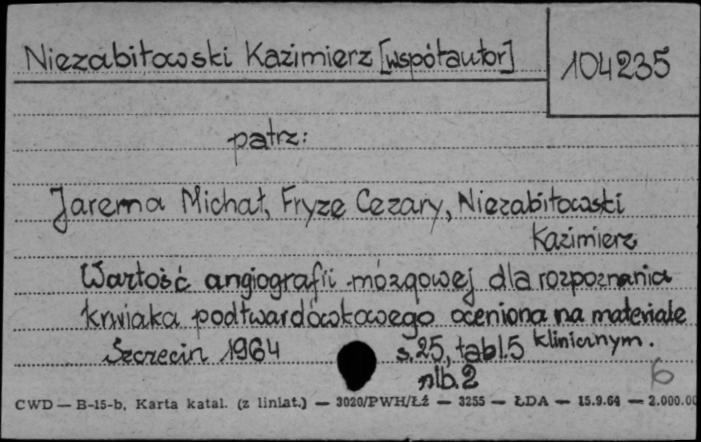 Niezabitowski Kazimierz [współautor]
104235
patrz:
Jarema Michał, Fryze Cezary, Niezabitowski
Kazimierz
Wartość angiografii mózgowej dla rozpoznania
krwiaka podtwardówkowego oceniona na materiale
klinicznym.
Szczecin 1964 s. 25, tabl. 5
nlb. 2
6
CWD — B-15-b, Karta katal. (z liniat.) — 3020/PWH/Łź — 3255 — ŁDA — 15.9.64 — 2.000.00